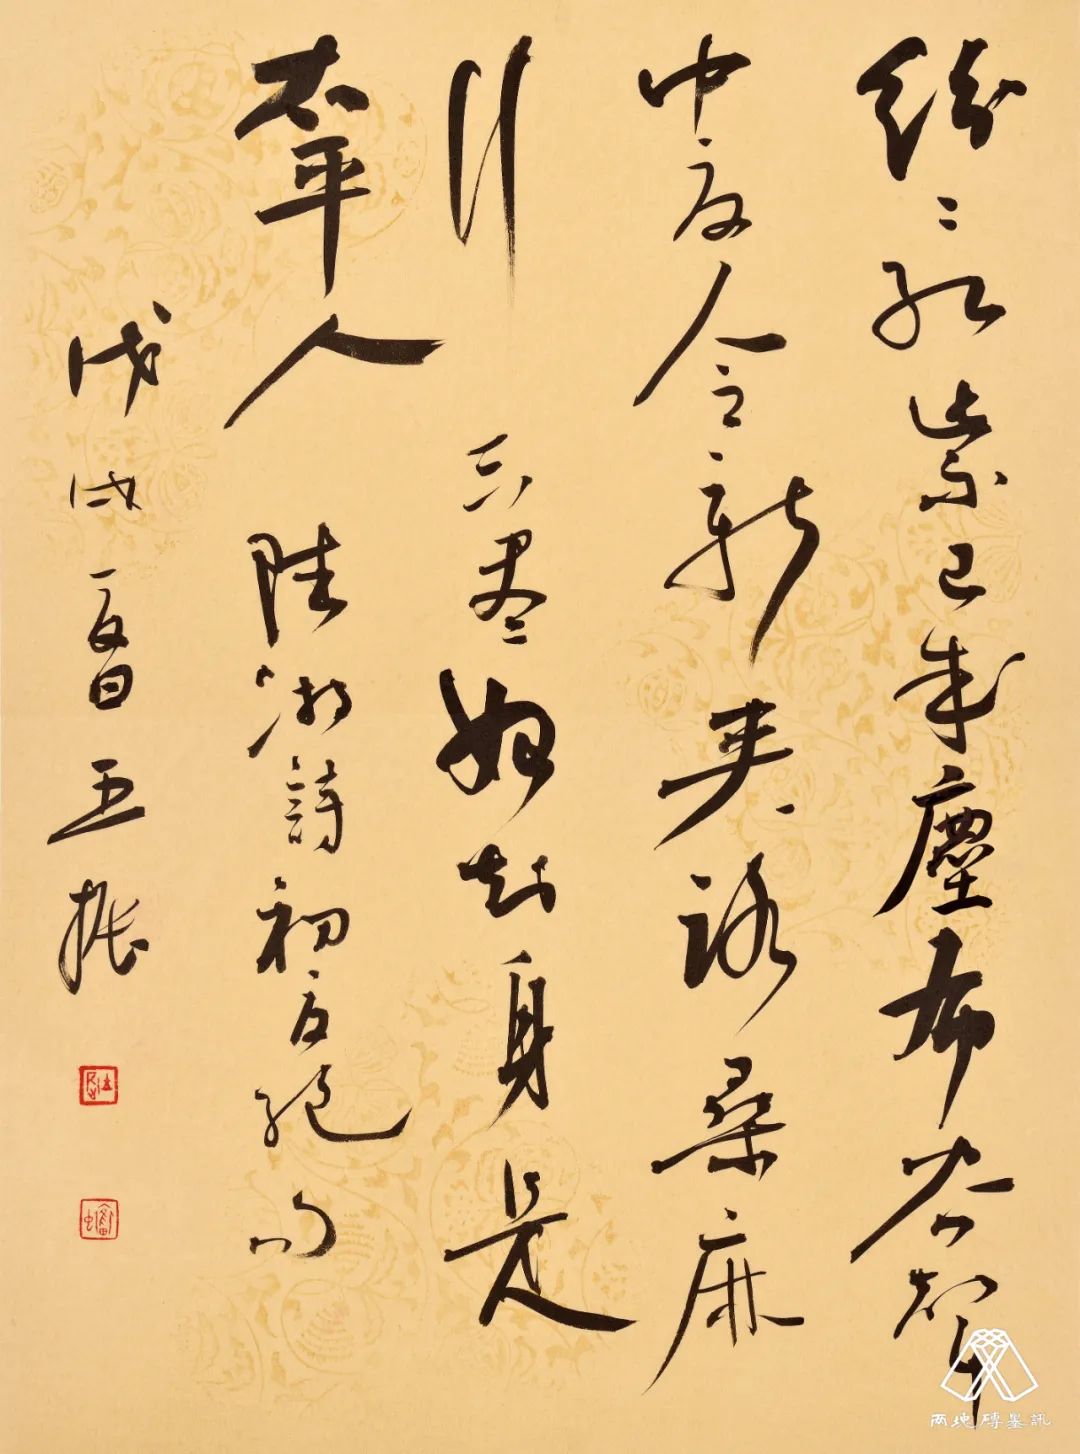 紛紛紅紫已成塵布谷聲
中夏令新夾路桑麻
行不盡始知身是
太平人 陸游詩初夏絕句
戊戌夏日王振
两地磚墨訊